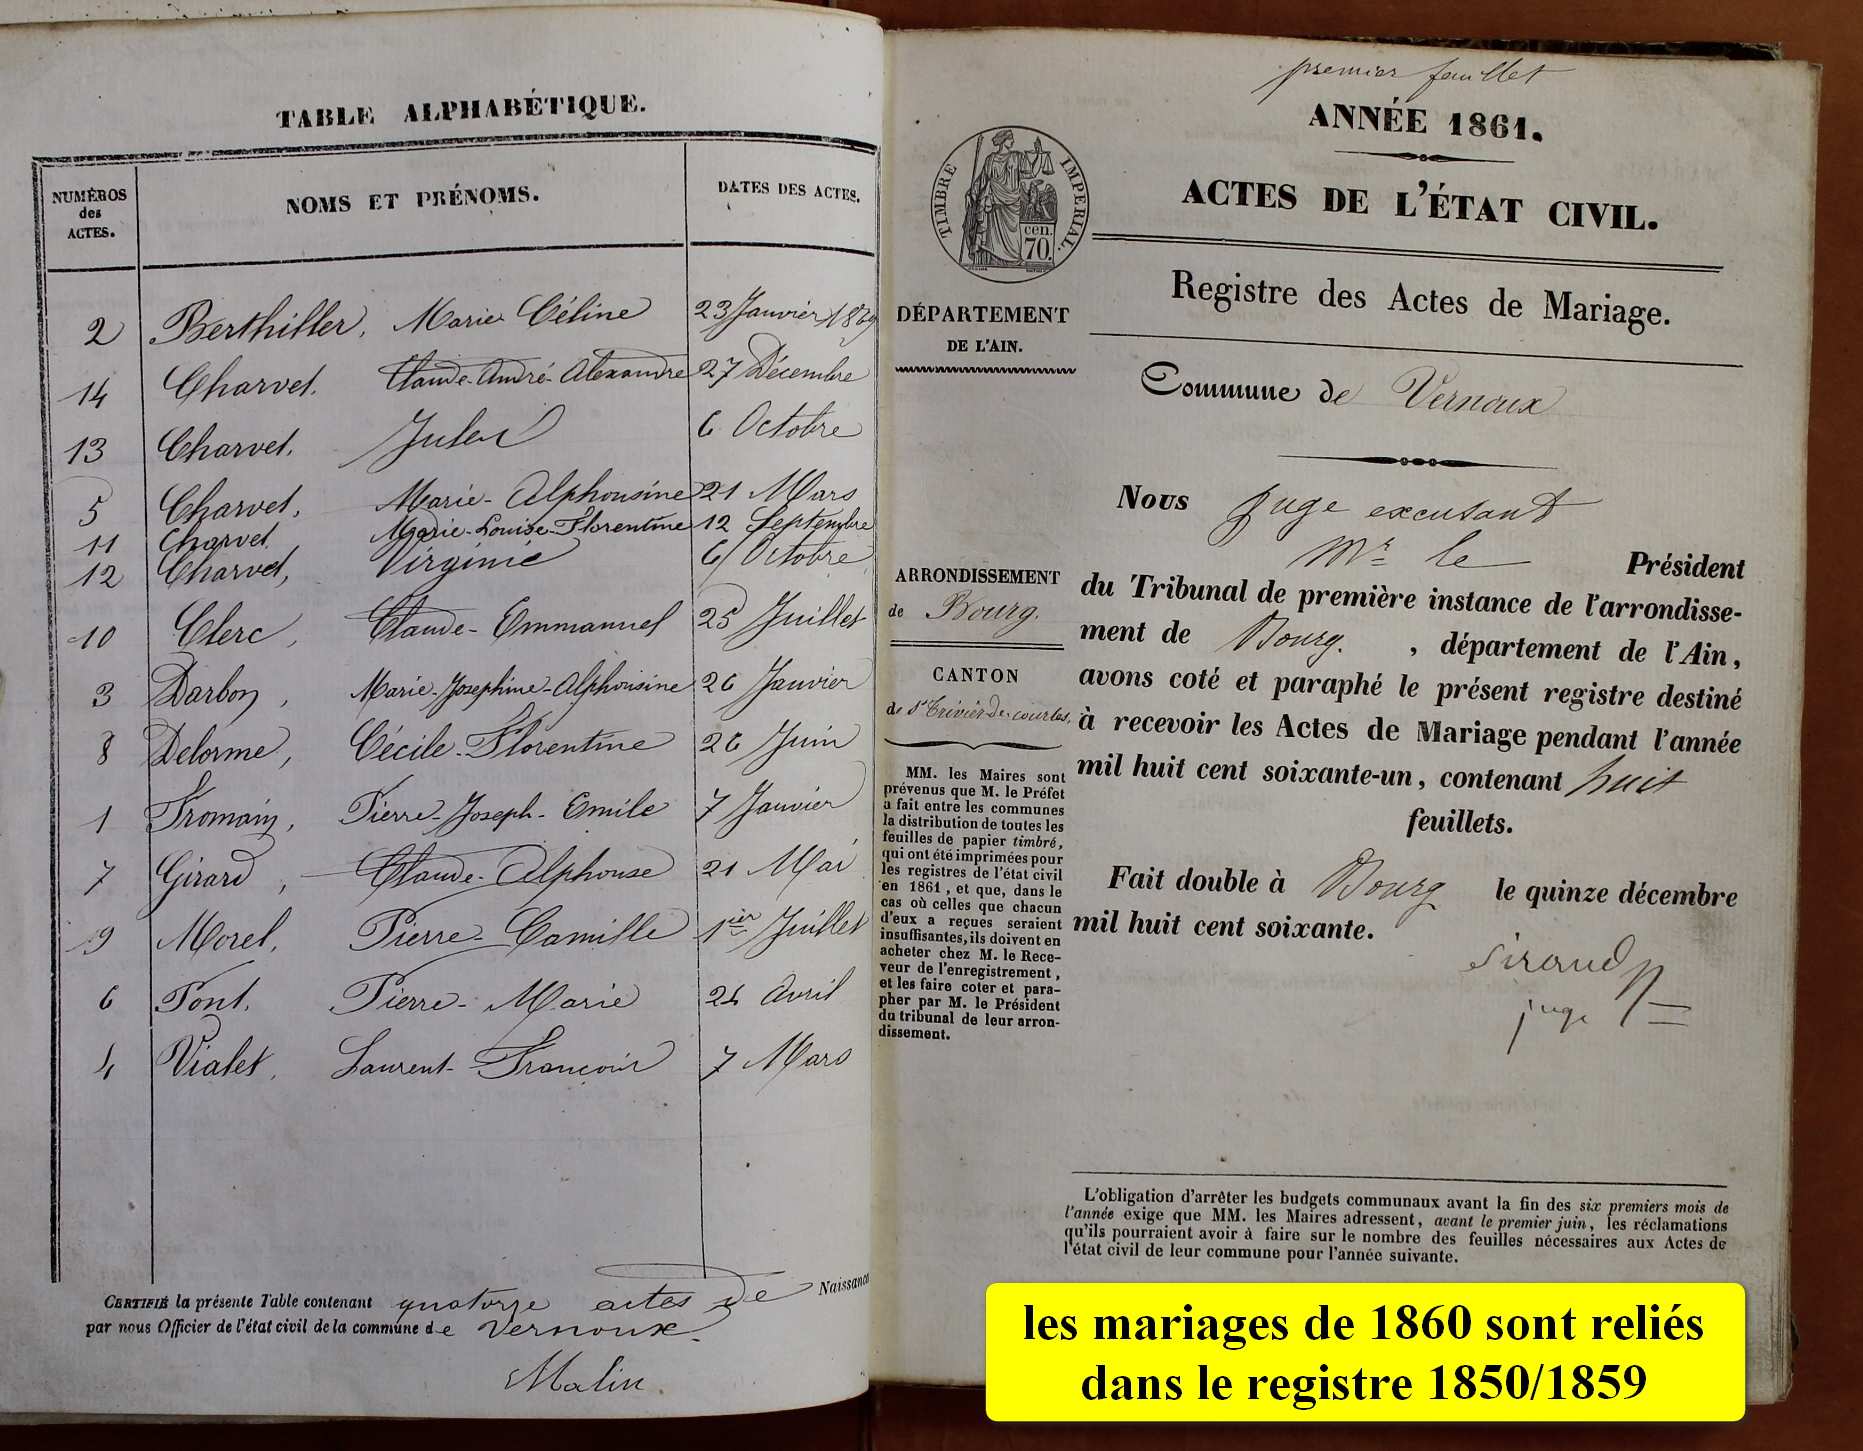 TABLE ALPHABÉTIQUE.
NUMÉROS des ACTES. NOMS ET PRÉNOMS. DATES DES ACTES.
2 Berthiller, Marie Céline 23 Janvier 1869
14 Charvet. Claude-André-Alexandre 27 Décembre
13 Charvet. Jules 6 Octobre
5 Charvet, Marie-Alphonsine 21 Mars
11 Charvet Marie-Louise-Florentine 12 Septembre
12 Charvet, Virginie 6 Octobre
10 Clerc, Claude-Emmanuel 25 Juillet
3 Darbon, Marie-Josephine-Alphonsine 26 Janvier
8 Delorme, Cécile-Florentine 26 Juin
1 Fromain, Pierre-Joseph-Emile 7 Janvier
7 Girard, Claude-Alphonse 21 Mai
9 Morel, Pierre-Camille 1ier Juillet
6 Pont, Pierre-Marie 24 Avril
4 Vialet, Laurent-François 7 Mars
CERTIFIÉ la présente Table contenant quatorze actes de Naissance
par nous Officier de l'état civil de la commune de Vernoux.
Malin
premier feuillet
ANNÉE 1861.
ACTES DE L'ÉTAT CIVIL.
TIMBRE IMPÉRIAL.
cen.
70.
Registre des Actes de Mariage.
DÉPARTEMENT
DE L'AIN.
Commune de Vernoux
Nous Juge excusant
Mr le Président
du Tribunal de première instance de l'arrondisse-
ment de Bourg. , département de l'Ain,
avons coté et paraphé le présent registre destiné
à recevoir les Actes de Mariage pendant l'année
mil huit cent soixante-un, contenant huit
feuillets.
Fait double à Bourg le quinze décembre
mil huit cent soixante.
juge
ARRONDISSEMENT
de Bourg.
CANTON
de St Trivier de courtes.
MM. les Maires sont
prévenus que M. le Préfet
a fait entre les communes
la distribution de toutes les
feuilles de papier timbré,
qui ont été imprimées pour
les registres de l'état civil
en 1861, et que, dans le
cas où celles que chacun
d'eux a reçues seraient
insuffisantes, ils doivent en
acheter chez M. le Rece-
veur de l'enregistrement,
et les faire coter et para-
pher par M. le Président
du tribunal de leur arron-
dissement.
L'obligation d'arrêter les budgets communaux avant la fin des six premiers mois de
l'année exige que MM. les Maires adressent, avant le premier juin, les réclamations
qu'ils pourraient avoir à faire sur le nombre des feuilles nécessaires aux Actes de
l'état civil de leur commune pour l'année suivante.
les mariages de 1860 sont reliés
dans le registre 1850/1859